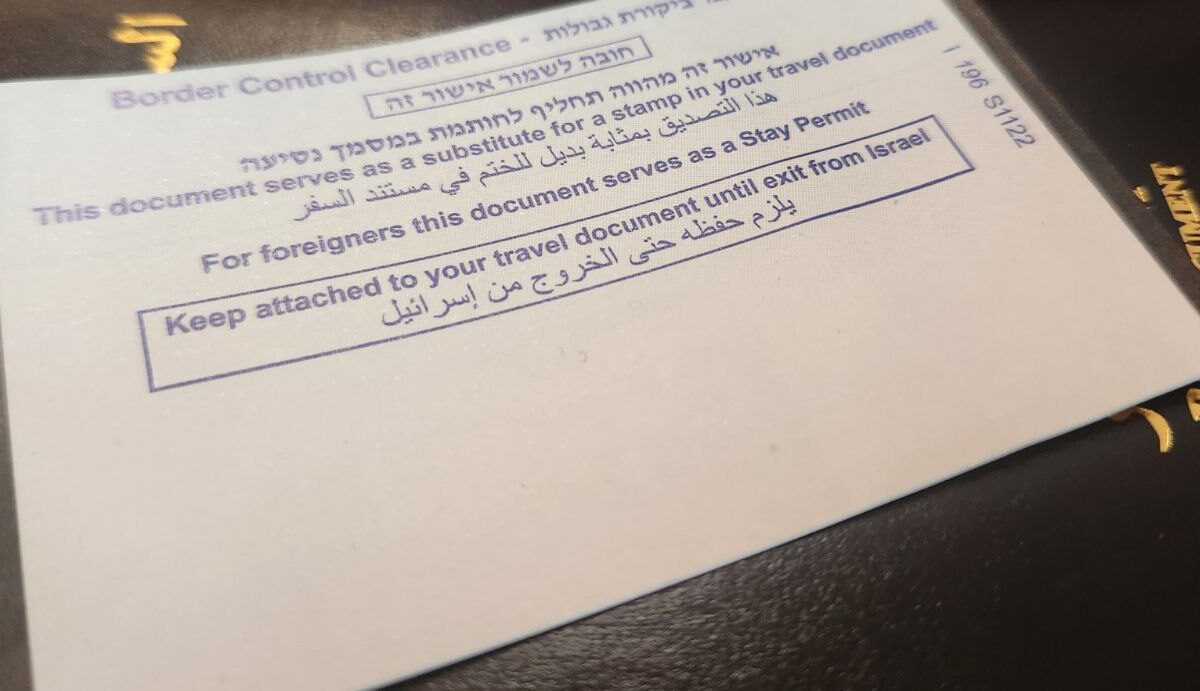 Border Control Clearance - ביקורת גבולות
חובה לשמור אישור זה
אישור זה מהווה תחליף לחותמת במסמך נסיעה
This document serves as a substitute for a stamp in your travel document
هذا التصديق بمثابة بديل للختم في مستند السفر
For foreigners this document serves as a Stay Permit
Keep attached to your travel document until exit from Israel
يلزم حفظه حتى الخروج من إسرائيل
196 S1122